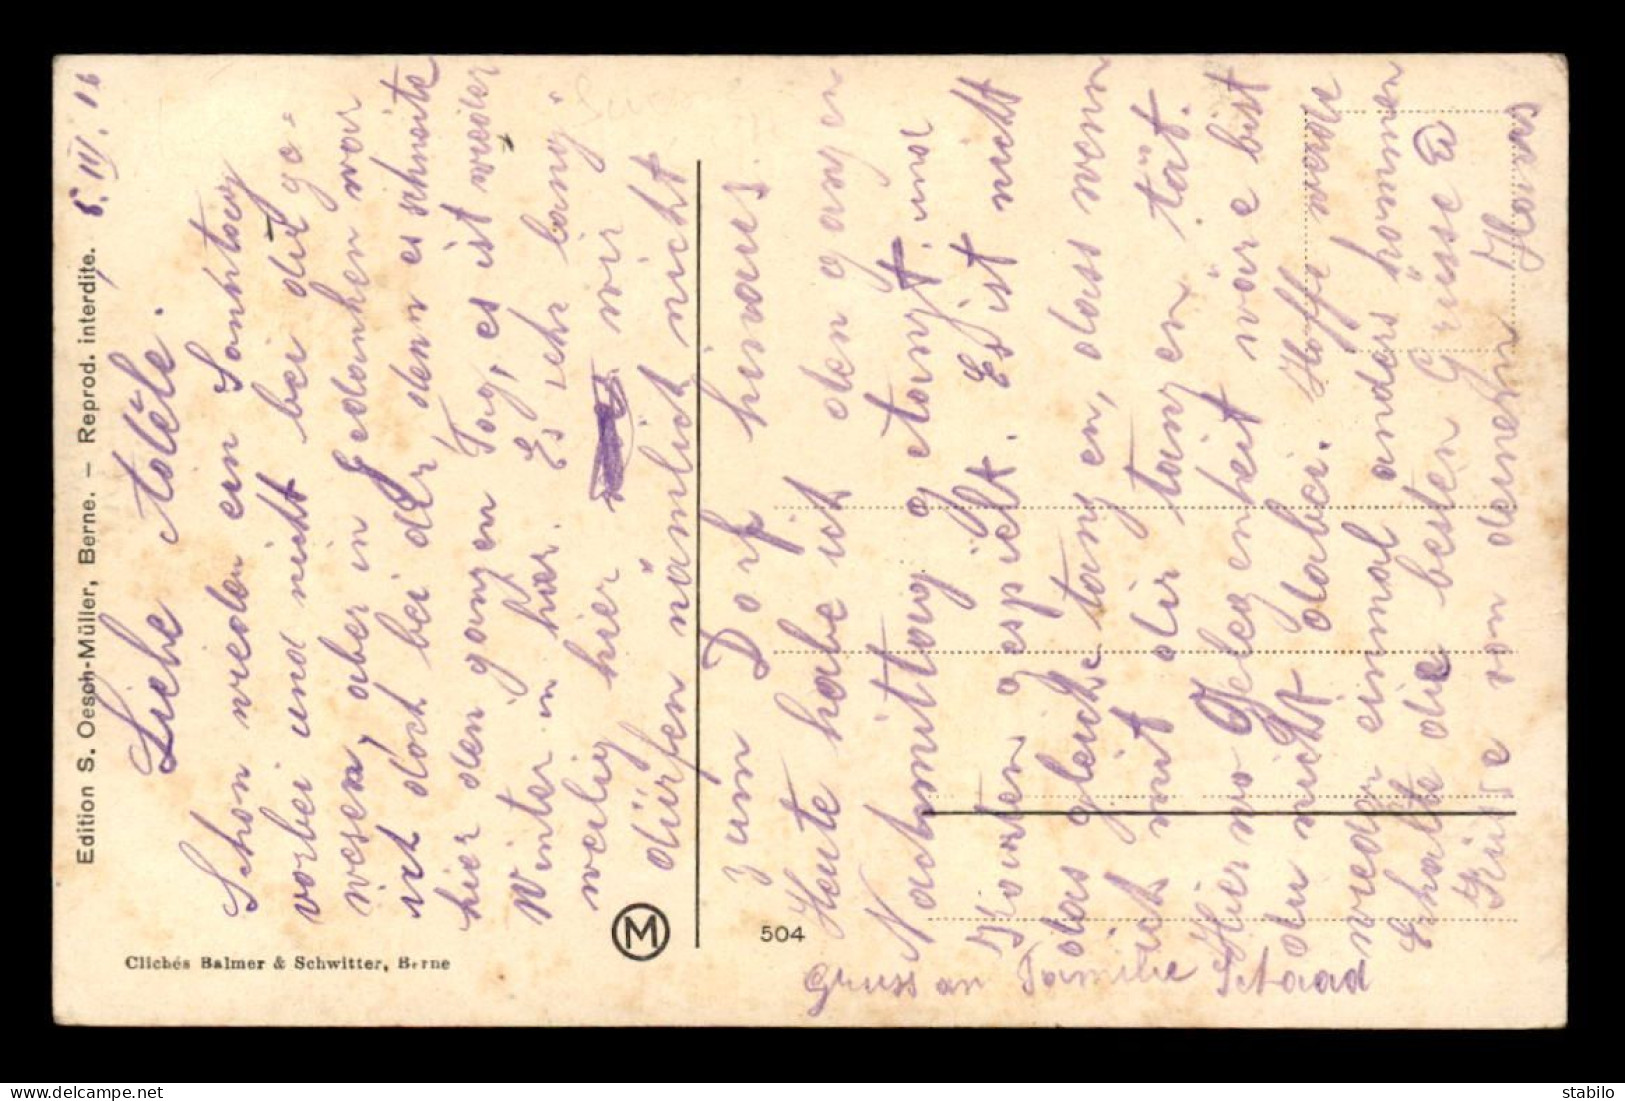 Edition S. Oesch-Müller, Berne. — Reprod. interdite.
8. III. 16
Liebe Adèle.
Schon wieder ein Sonntag
vorbei und nicht bei dir ge-
wesen, aber in Gedanken war
ich doch bei dir denn es schneite
hier den ganzen Tag, es ist wieder
Winter in hier. Es sehr lang-
weilig hier wir
dürfen nämlich nicht
zum Dorf hinaus
Heute habe ich den ganzen
Nachmittag getanzt und
Karten gespielt. Es ist nicht
das gleiche tanzen, dass wenn
ich mit dir tanzen tät.
Hier wo Gelegenheit wäre bist
du nicht dabei. Hoffe werde
wieder einmal anders kommen
Erhalte die besten Grüsse &
Küsse von deinem Hans
Gruss an Familie Schaad
Clichés Balmer & Schwitter, Berne
M
504
stabilo